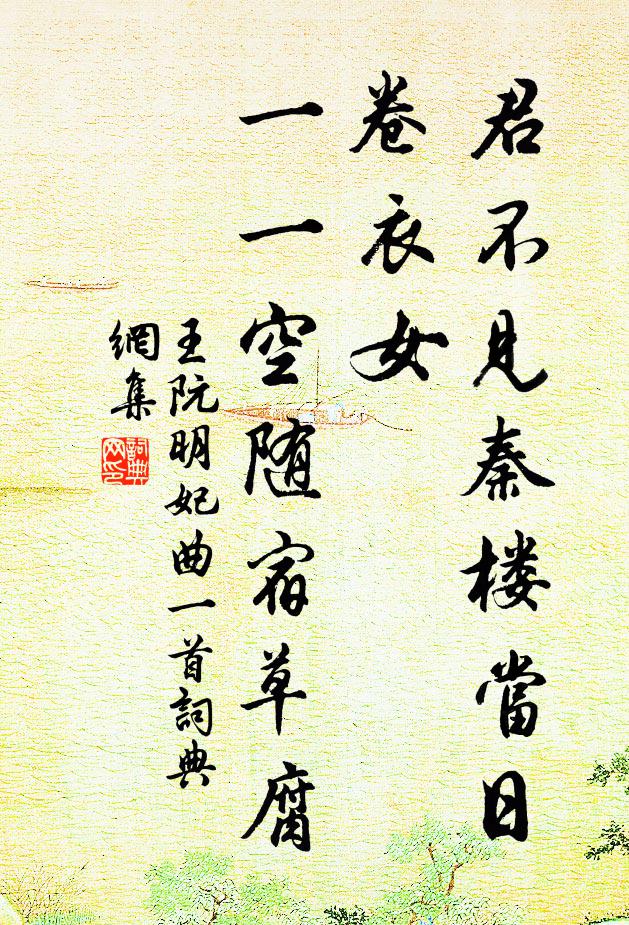 君不见秦楼當日
卷衣女
一一空随宿草腐
王阮明妃曲一首詞典
網集
詞典网印